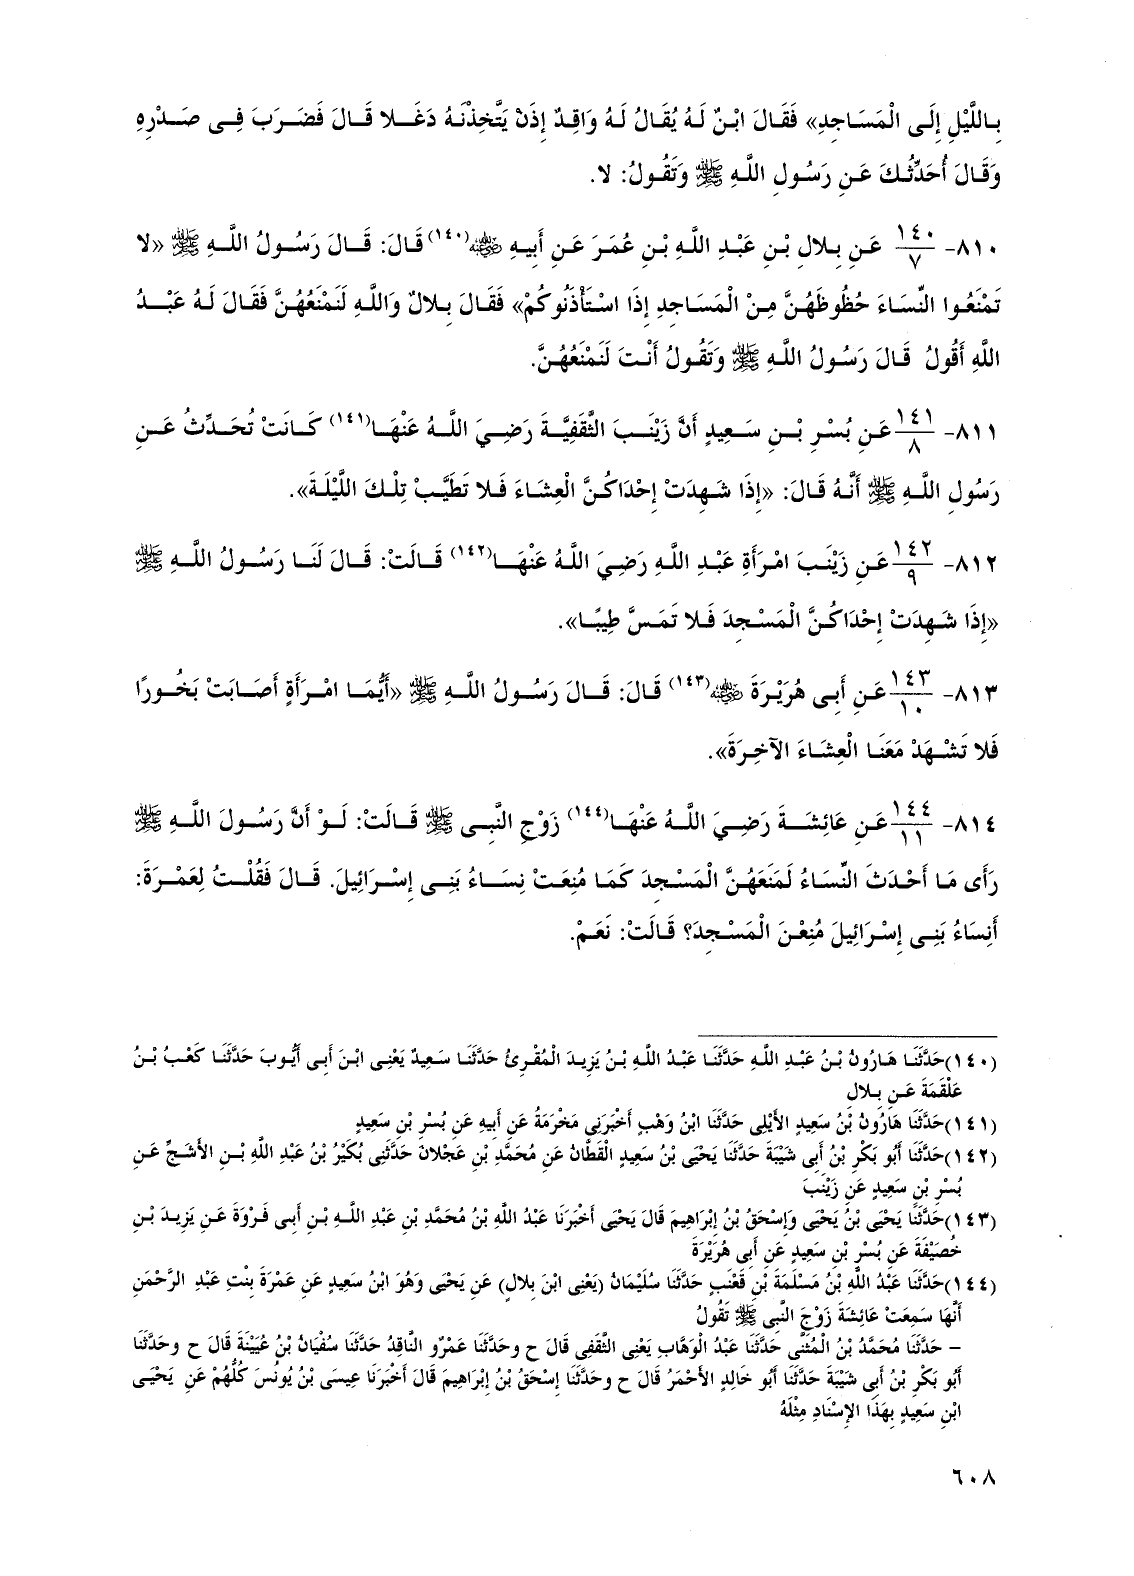 بِاللَّيْلِ إِلَى الْمَسَاجِدِ» فَقَالَ ابْنٌ لَهُ يُقَالُ لَهُ وَاقِدٌ إِذَنْ يَتَّخِذْنَهُ دَغَلا قَالَ فَضَرَبَ فِى صَدْرِهِ
وَقَالَ أُحَدِّثُكَ عَنِ رَسُولِ اللَّهِ ﷺ وَتَقُولُ: لا.
٨١٠- ١٤٠/٧ عَنِ بِلالِ بْنِ عَبْدِ اللَّهِ بْنِ عُمَرَ عَنِ أَبِيهِ ﵁(١٤٠) قَالَ: قَالَ رَسُولُ اللَّهِ ﷺ «لا
تَمْنَعُوا النِّسَاءَ حُظُوظَهُنَّ مِنْ الْمَسَاجِدِ إِذَا اسْتَأْذَنُوكُمْ» فَقَالَ بِلالٌ وَاللَّهِ لَنَمْنَعُهُنَّ فَقَالَ لَهُ عَبْدُ
اللَّهِ أَقُولُ قَالَ رَسُولُ اللَّهِ ﷺ وَتَقُولُ أَنْتَ لَنَمْنَعُهُنَّ.
٨١١- ١٤١/٨ عَنِ بُسْرِ بْنِ سَعِيدٍ أَنَّ زَيْنَبَ الثَّقَفِيَّةَ رَضِيَ اللَّهُ عَنْهَا(١٤١) كَانَتْ تُحَدِّثُ عَنِ
رَسُولِ اللَّهِ ﷺ أَنَّهُ قَالَ: «إِذَا شَهِدَتْ إِحْدَاكُنَّ الْعِشَاءَ فَلا تَطَيَّبْ تِلْكَ اللَّيْلَةَ».
٨١٢- ١٤٢/٩ عَنِ زَيْنَبَ امْرَأَةِ عَبْدِ اللَّهِ رَضِيَ اللَّهُ عَنْهَا(١٤٢) قَالَتْ: قَالَ لَنَا رَسُولُ اللَّهِ ﷺ
«إِذَا شَهِدَتْ إِحْدَاكُنَّ الْمَسْجِدَ فَلا تَمَسَّ طِيبًا».
٨١٣- ١٤٣/١٠ عَنِ أَبِى هُرَيْرَةَ ﵁(١٤٣) قَالَ: قَالَ رَسُولُ اللَّهِ ﷺ «أَيُّمَا امْرَأَةٍ أَصَابَتْ بَخُورًا
فَلا تَشْهَدْ مَعَنَا الْعِشَاءَ الآخِرَةَ».
٨١٤- ١٤٤/١١ عَنِ عَائِشَةَ رَضِيَ اللَّهُ عَنْهَا(١٤٤) زَوْجِ النَّبِى ﷺ قَالَتْ: لَوْ أَنَّ رَسُولَ اللَّهِ ﷺ
رَأَى مَا أَحْدَثَ النِّسَاءُ لَمَنَعَهُنَّ الْمَسْجِدَ كَمَا مُنِعَتْ نِسَاءُ بَنِى إِسْرَائِيلَ. قَالَ فَقُلْتُ لِعَمْرَةَ:
أَنِسَاءُ بَنِى إِسْرَائِيلَ مُنِعْنَ الْمَسْجِدَ؟ قَالَتْ: نَعَمْ.
(١٤٠)حَدَّثَنَا هَارُونُ بْنُ عَبْدِ اللَّهِ حَدَّثَنَا عَبْدُ اللَّهِ بْنُ يَزِيدَ الْمُقْرِئُ حَدَّثَنَا سَعِيدٌ يَعْنِى ابْنَ أَبِى أَيُّوبَ حَدَّثَنَا كَعْبُ بْنُ
عَلْقَمَةَ عَنِ بِلالِ
(١٤١)حَدَّثَنَا هَارُونُ بْنُ سَعِيدٍ الأَيْلِى حَدَّثَنَا ابْنُ وَهْبٍ أَخْبَرَنِى مَخْرَمَةُ عَنِ أَبِيهِ عَنِ بُسْرِ بْنِ سَعِيدٍ
(١٤٢)حَدَّثَنَا أَبُو بَكْرِ بْنُ أَبِى شَيْبَةَ حَدَّثَنَا يَحْيَى بْنُ سَعِيدٍ الْقَطَّانُ عَنِ مُحَمَّدِ بْنِ عَجْلانَ حَدَّثَنِى بُكَيْرُ بْنُ عَبْدِ اللَّهِ بْنِ الأَشَجِّ عَنِ
بُسْرِ بْنِ سَعِيدٍ عَنِ زَيْنَبَ
(١٤٣)حَدَّثَنَا يَحْيَى بْنُ يَحْيَى وَإِسْحَقُ بْنُ إِبْرَاهِيمَ قَالَ يَحْيَى أَخْبَرَنَا عَبْدُ اللَّهِ بْنُ مُحَمَّدِ بْنِ عَبْدِ اللَّهِ بْنِ أَبِى فَرْوَةَ عَنِ يَزِيدَ بْنِ
خُصَيْفَةَ عَنِ بُسْرِ بْنِ سَعِيدٍ عَنِ أَبِى هُرَيْرَةَ
(١٤٤)حَدَّثَنَا عَبْدُ اللَّهِ بْنُ مَسْلَمَةَ بْنِ قَعْنَبٍ حَدَّثَنَا سُلَيْمَانُ (يَعْنِى ابْنَ بِلالٍ) عَنِ يَحْيَى وَهُوَ ابْنُ سَعِيدٍ عَنِ عَمْرَةَ بِنْتِ عَبْدِ الرَّحْمَنِ
أَنَّهَا سَمِعَتْ عَائِشَةَ زَوْجَ النَّبِى ﷺ تَقُولُ
– حَدَّثَنَا مُحَمَّدُ بْنُ الْمُثَنَّى حَدَّثَنَا عَبْدُ الْوَهَّابِ يَعْنِى الثَّقَفِى قَالَ ح وحَدَّثَنَا عَمْرٌو النَّاقِدُ حَدَّثَنَا سُفْيَانُ بْنُ عُيَيْنَةَ قَالَ ح وحَدَّثَنَا
أَبُو بَكْرِ بْنُ أَبِى شَيْبَةَ حَدَّثَنَا أَبُو خَالِدٍ الأَحْمَرُ قَالَ ح وحَدَّثَنَا إِسْحَقُ بْنُ إِبْرَاهِيمَ قَالَ أَخْبَرَنَا عِيسَى بْنُ يُونُسَ كُلُّهُمْ عَنِ يَحْيَى
ابْنِ سَعِيدٍ بِهَذَا الإِسْنَادِ مِثْلَهُ
٦٠٨